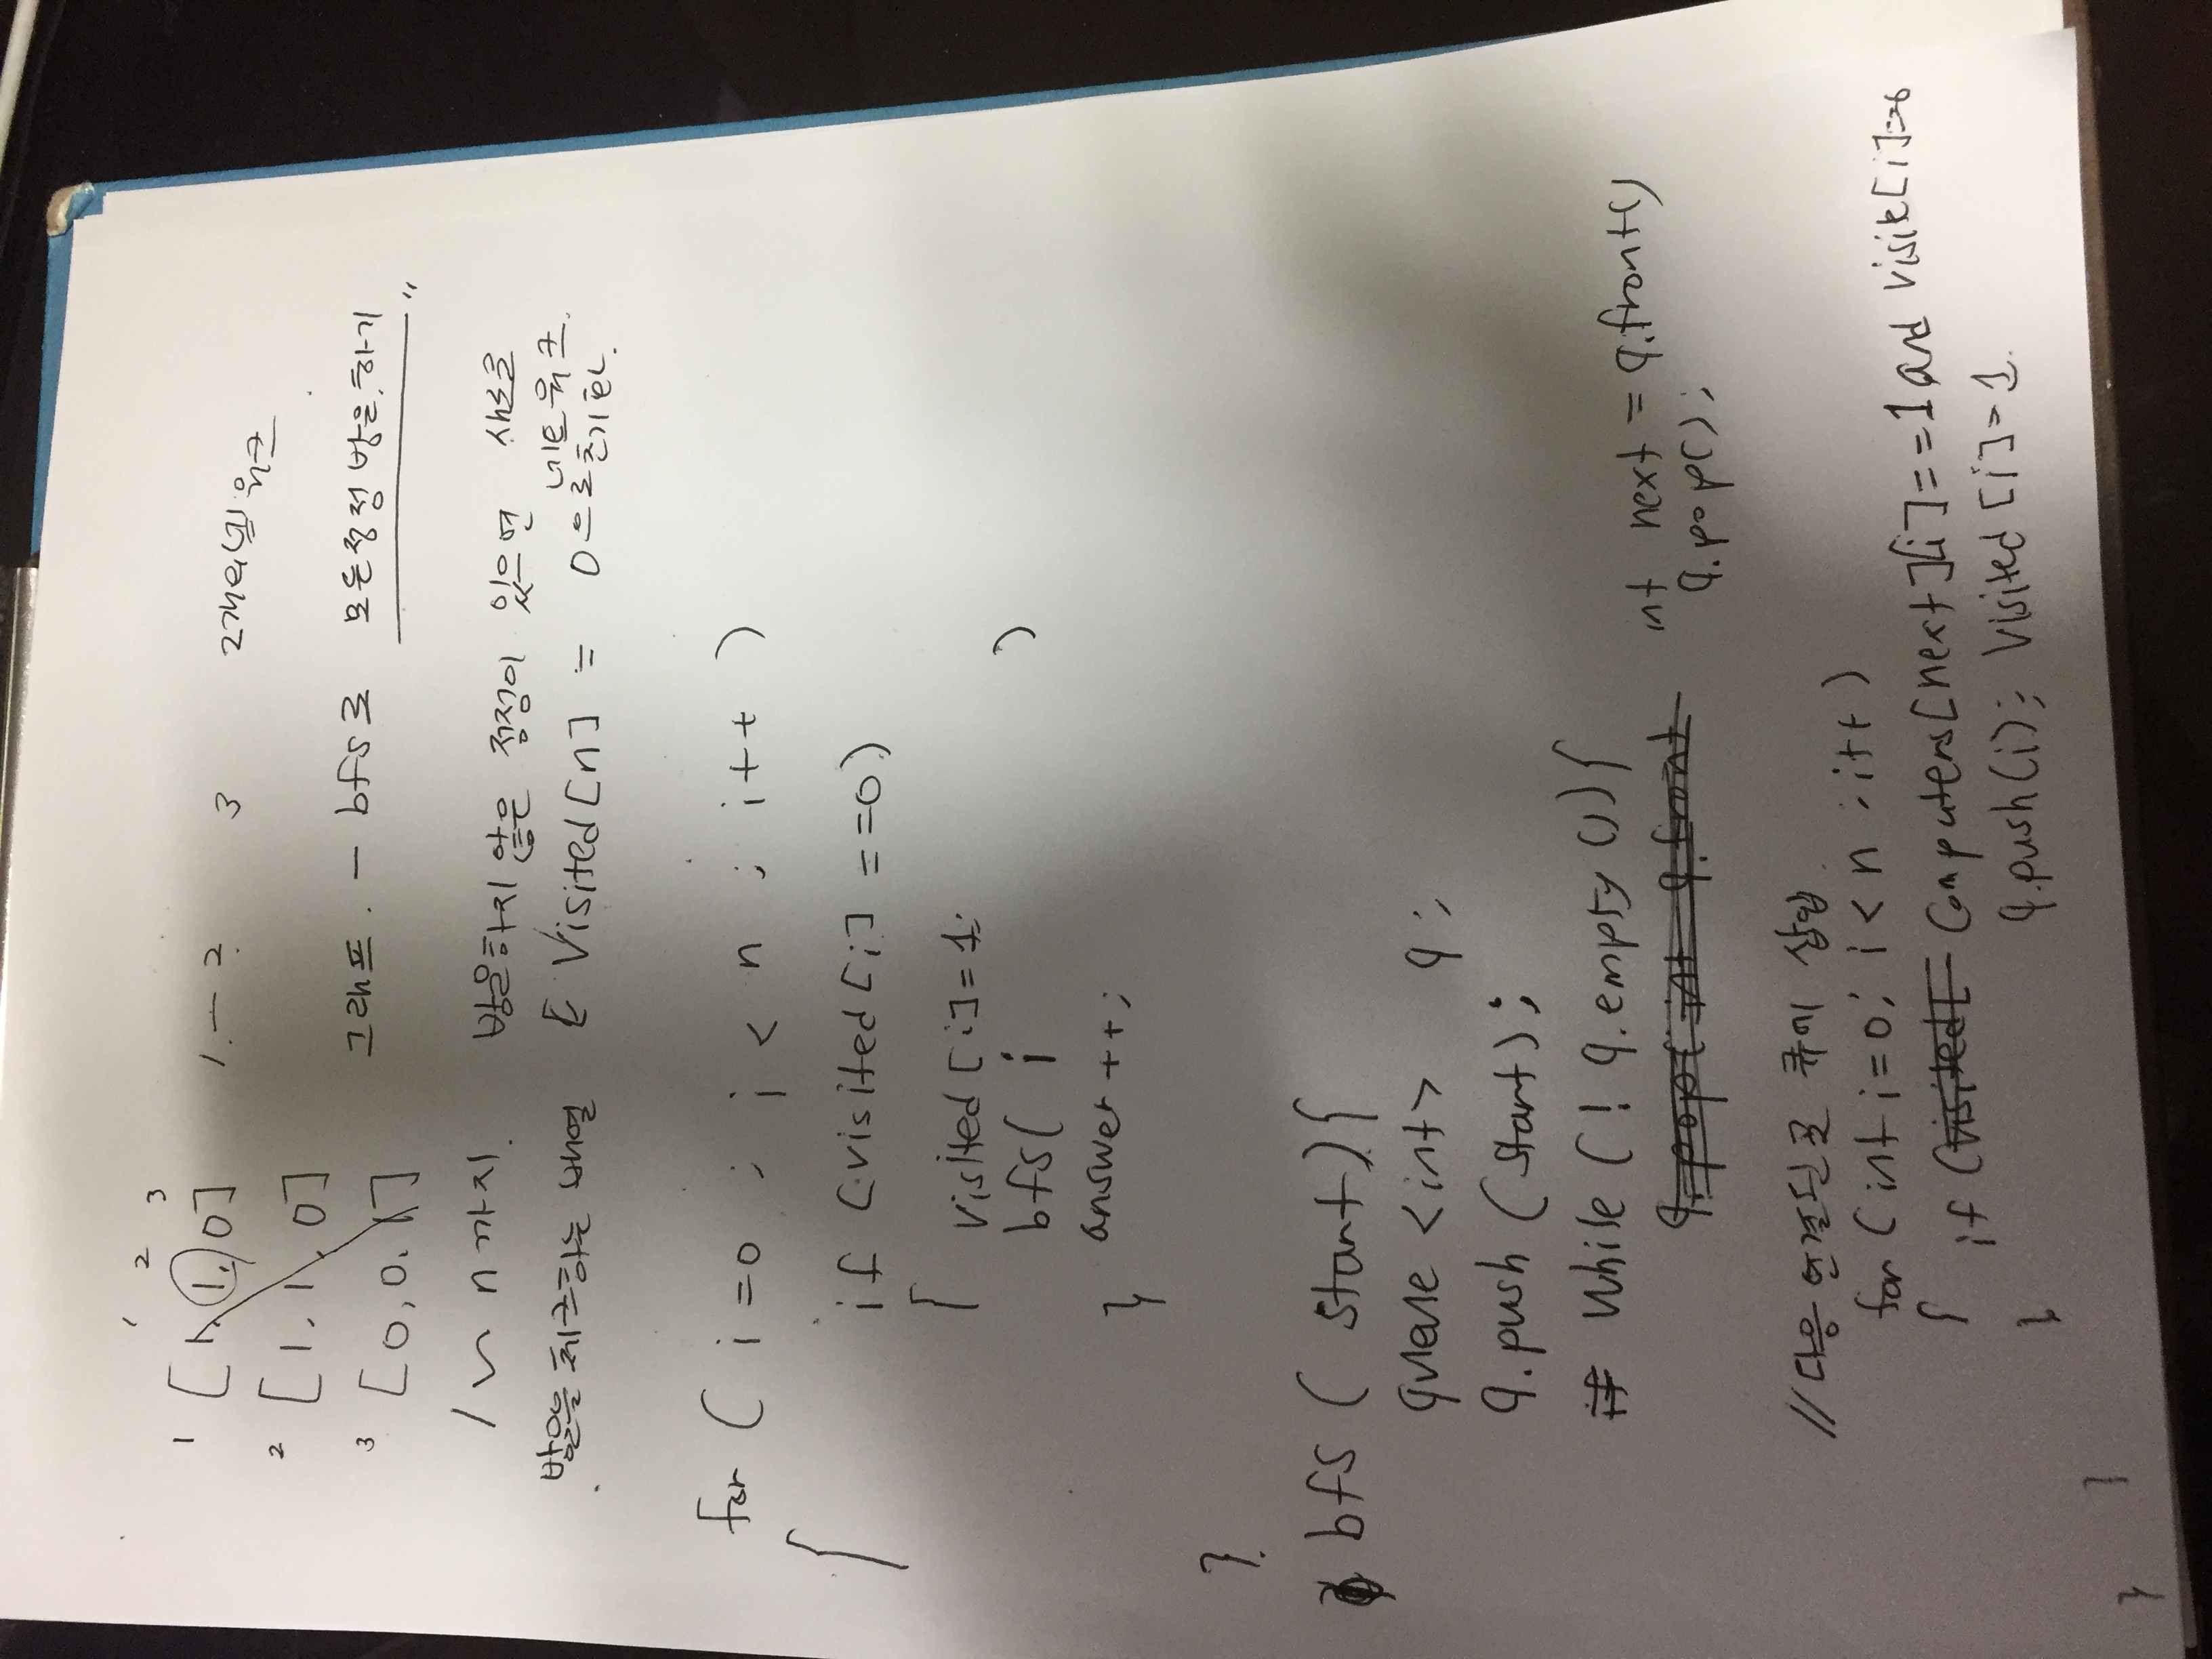 1 2 3
1 [1, 1, 0] 1 — 2 3 2개의 네트워크
2 [1, 1, 0]
3 [0, 0, 1] 그래프. - bfs로 모든정점 방문하기 "
1 ~ n 까지. 방문하지 않은 정점이 있으면 새로운 네트워크.
방문을 체크하는 배열 Visited[n] = 0으로 초기화.
for ( i=0 ; i < n ; i++ )
{
if (visited[i] == 0)
{
visited[i]=1;
bfs( i )
answer ++;
}
}
bfs ( start) {
queue <int> q;
q.push (start);
if While (! q.empty ()) {
q.pop( int q.front int next = q.front()
q.pop();
// 다음 연결된곳 큐에 삽입
for (int i=0; i<n ; i++ )
{
if (visited[ Computers[next][i]==1 and visite[i]==0
q.push(i); Visited[i]=1.
}
}
}